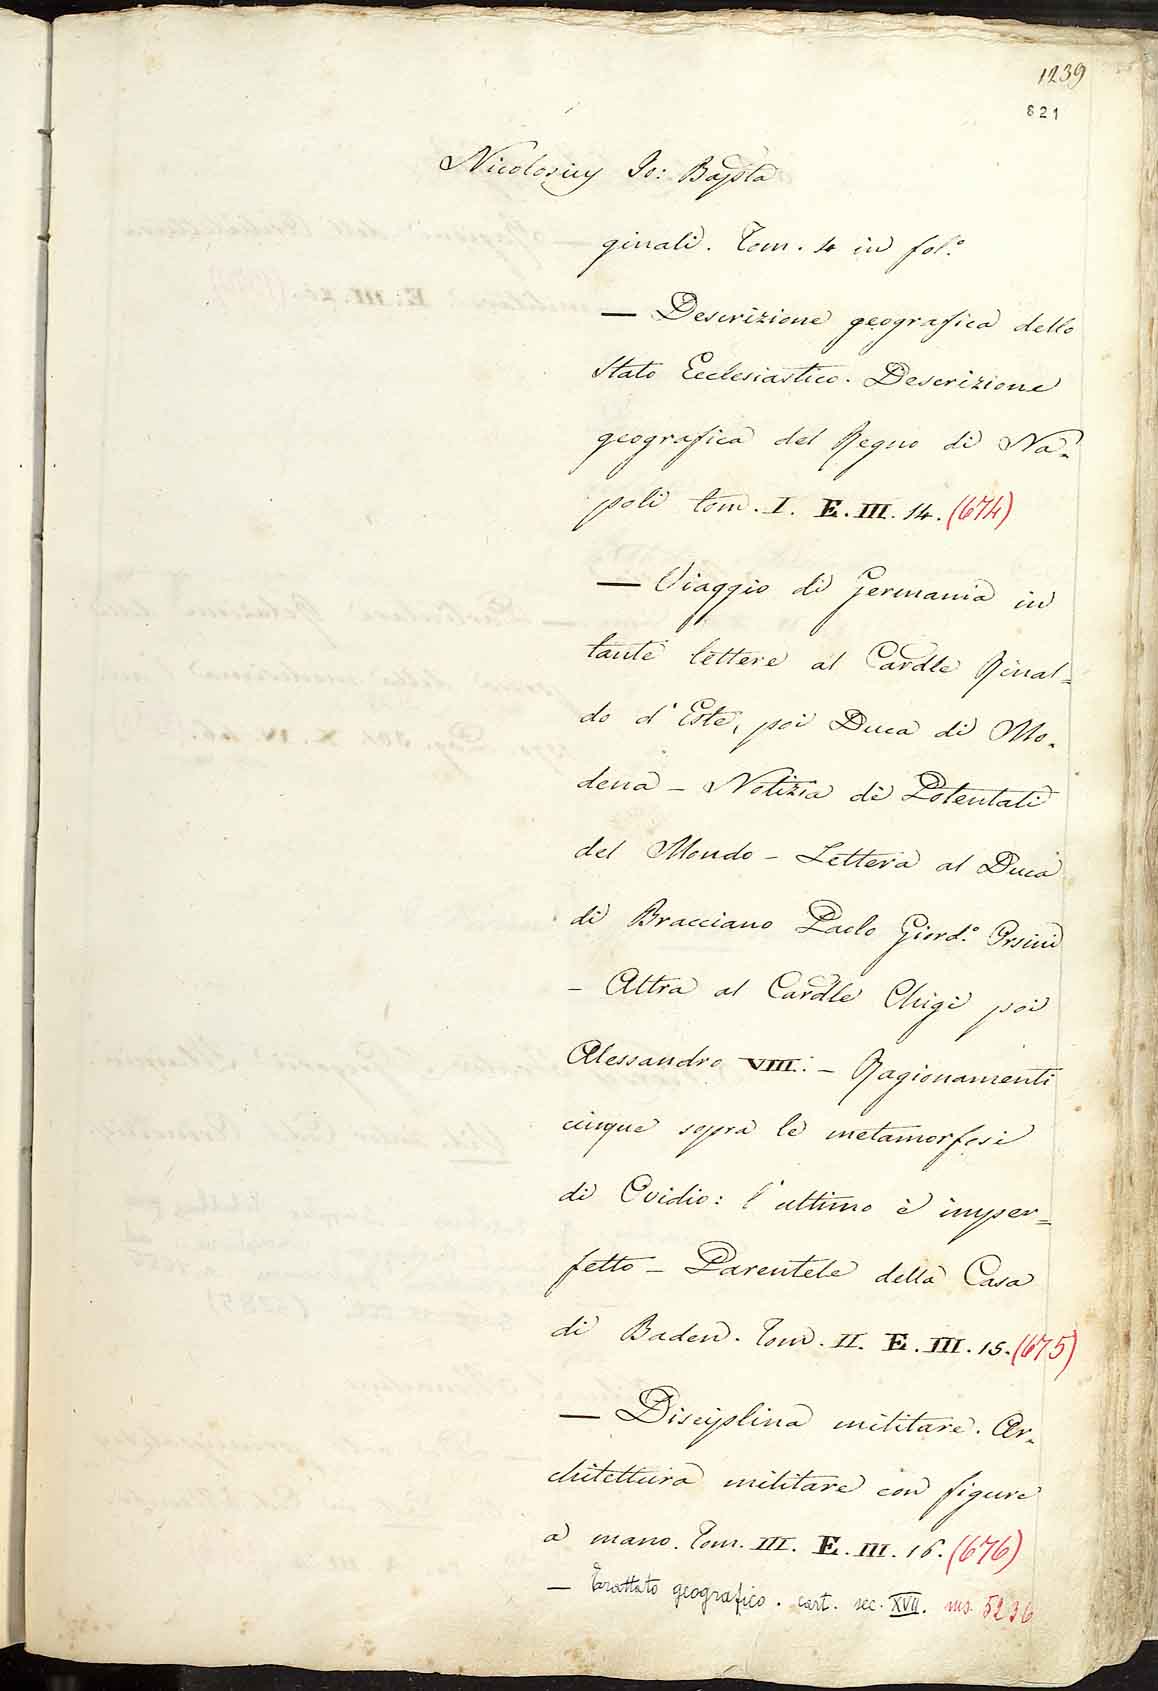 1239
621
Nicolosius Jo: Bapsta
ginali. Tom. 4 in fol.º
— Descrizione geografica dello
Stato Ecclesiastico. Descrizione
geografica del Regno di Na-
poli tom. I. E. III. 14. (674)
— Viaggio di Germania in
tante lettere al Cardle Rinal=
do d'Este, poi Duca di Mo-
dena – Notizia di Potentati
del Mondo – Lettera al Duca
di Bracciano Paolo Giord.º Orsini
– Altra al Cardle Chigi poi
Alessandro VIII: – Ragionamenti
cinque sopra le metamorfosi
di Ovidio: l'ultimo è imper=
fetto – Parentele della Casa
di Baden. Tom. II. E. III. 15. (675)
— Disciplina militare. Ar-
chitettura militare con figure
a mano. Tom. III. E. III. 16. (676)
— Trattato geografico. cart. sec. XVII. ms. 5236